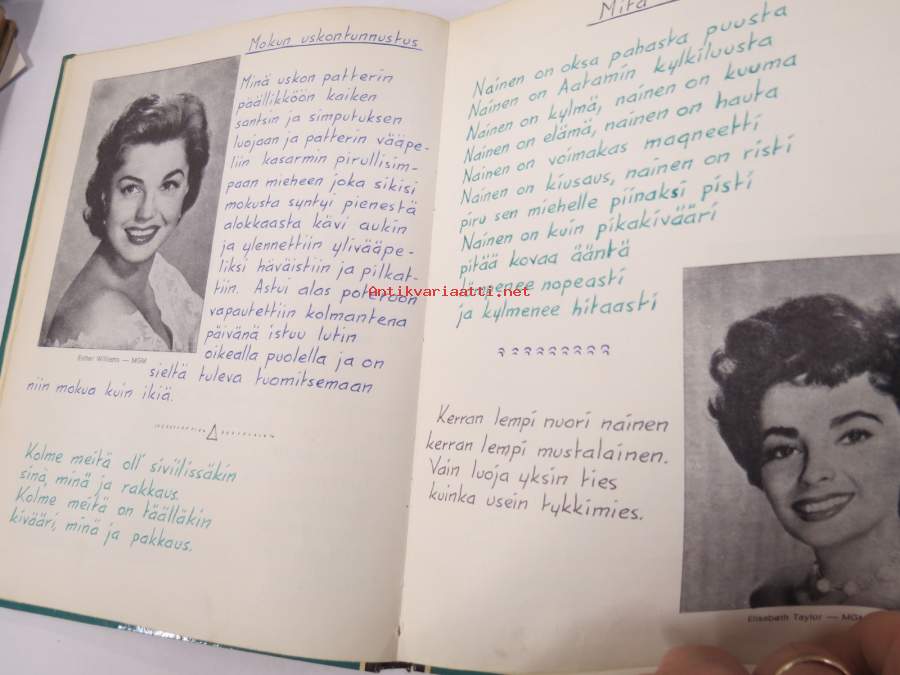 Mokun uskontunnustus
Minä uskon patterin
päällikköön kaiken
santsin ja simputuksen
luojaan ja patterin vääpe-
liin kasarmin pirullisim-
paan mieheen joka sikisi
mokusta syntyi pienestä
alokkaasta kävi aukin
ja ylennettiin ylivääpe-
liksi häväistiin ja pilkat-
tiin. Astui alas poteroon
vapautettiin kolmantena
päivänä istuu lutin
oikealla puolella ja on
sieltä tuleva tuomitsemaan
niin mokua kuin ikiä.
Esther Williams — MGM
Kolme meitä oll' siviilissäkin
sinä, minä ja rakkaus.
Kolme meitä on täälläkin
kivääri, minä ja pakkaus.
Mitä
Nainen on oksa pahasta puusta
Nainen on Aatamin kylkiluusta
Nainen on kylmä, nainen on kuuma
Nainen on elämä, nainen on hauta
Nainen on voimakas magneetti
Nainen on kiusaus, nainen on risti
piru sen miehelle piinaksi pisti
Nainen on kuin pikakivääri
pitää kovaa ääntä
nopeasti
ja kylmenee hitaasti
Antikvariaatti.net
Kerran lempi nuori nainen
kerran lempi mustalainen.
Vain luoja yksin ties
kuinka usein tykkimies.
Elisabeth Taylor — MGM